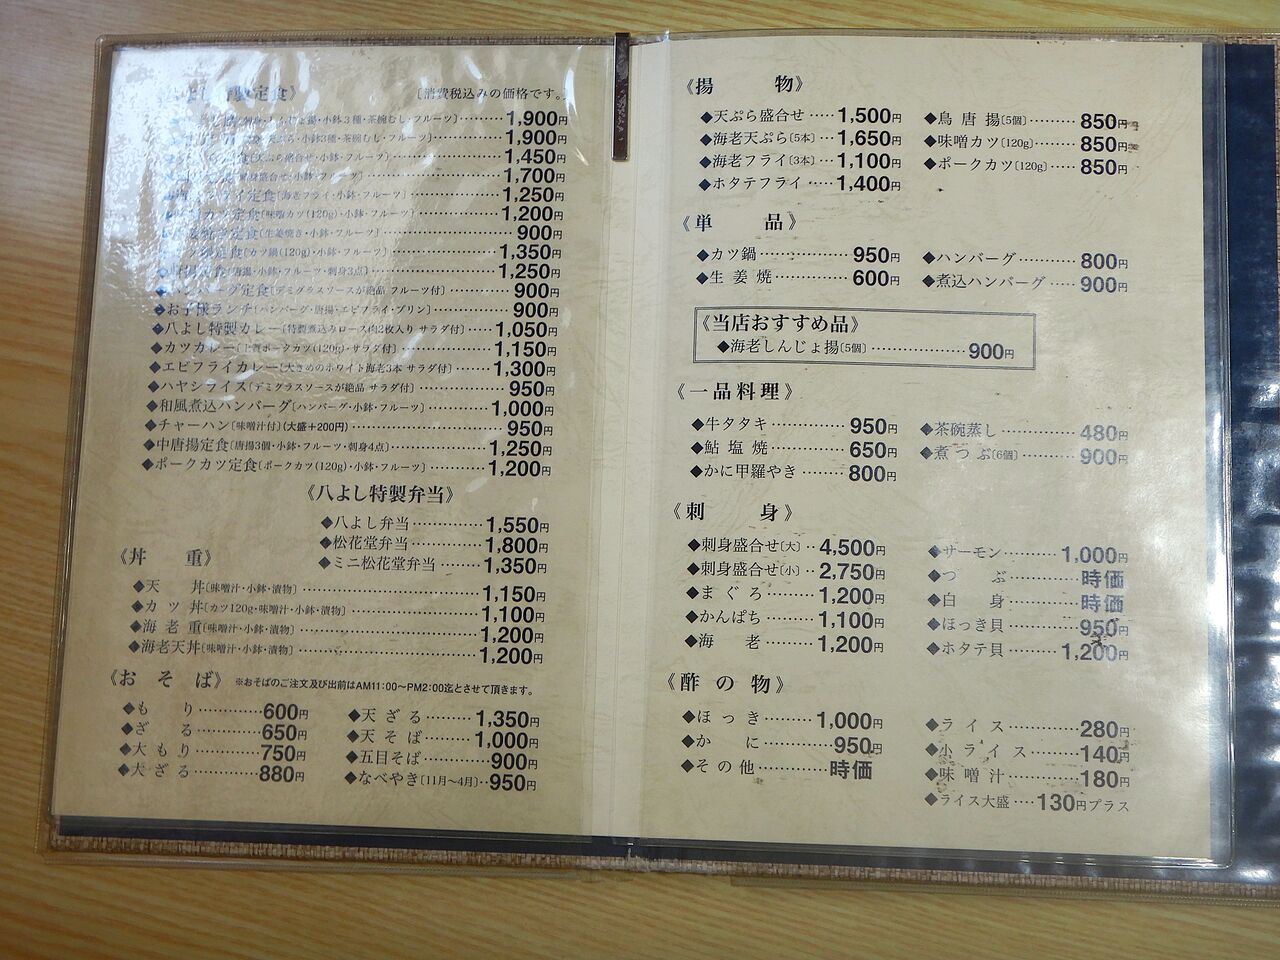 定食》 〔消費税込みの価格です。〕
小鉢3種・茶碗むし・フルーツ〕 1,900円
天ぷら・小鉢3種・茶碗むし・フルーツ〕 1,900円
〔天ぷら盛合せ・小鉢・フルーツ〕 1,450円
刺身盛合せ・小鉢・フルーツ〕 1,700円
フライ定食〔海老フライ・小鉢・フルーツ〕 1,250円
カツ定食〔味噌カツ(120g)・小鉢・フルーツ〕 1,200円
定食〔生姜焼き・小鉢・フルーツ〕 900円
定食〔カツ鍋(120g)・小鉢・フルーツ〕 1,350円
定食〔唐揚・小鉢・フルーツ・刺身3点〕 1,250円
ハンバーグ定食〔デミグラスソースが絶品 フルーツ付〕 900円
◆お子様ランチ〔ハンバーグ・唐揚・エビフライ・プリン〕 900円
◆八よし特製カレー〔特製煮込みロース肉2枚入り サラダ付〕 1,050円
◆カツカレー〔上質ポークカツ(120g)・サラダ付〕 1,150円
◆エビフライカレー〔大きめのホワイト海老3本 サラダ付〕 1,300円
◆ハヤシライス〔デミグラスソースが絶品 サラダ付〕 950円
◆和風煮込ハンバーグ〔ハンバーグ・小鉢・フルーツ〕 1,000円
◆チャーハン〔味噌汁付〕(大盛+200円) 950円
◆中唐揚定食〔唐揚3個・小鉢・フルーツ・刺身4点〕 1,250円
◆ポークカツ定食〔ポークカツ(120g)・小鉢・フルーツ〕 1,200円
《八よし特製弁当》
◆八よし弁当 1,550円
◆松花堂弁当 1,800円
◆ミニ松花堂弁当 1,350円
《丼 重》
◆天 丼〔味噌汁・小鉢・漬物〕 1,150円
◆カツ丼〔カツ120g・味噌汁・小鉢・漬物〕 1,100円
◆海老重〔味噌汁・小鉢・漬物〕 1,200円
◆海老天丼〔味噌汁・小鉢・漬物〕 1,200円
《おそば》 ※おそばのご注文及び出前はAM11:00〜PM2:00迄とさせて頂きます。
◆も り 600円
◆ざ る 650円
◆大もり 750円
◆大ざる 880円
◆天ざる 1,350円
◆天そば 1,000円
◆五目そば 900円
◆なべやき〔11月〜4月〕 950円
《揚 物》
◆天ぷら盛合せ 1,500円
◆海老天ぷら〔5本〕 1,650円
◆海老フライ〔3本〕 1,100円
◆ホタテフライ 1,400円
◆鳥唐揚〔5個〕 850円
◆味噌カツ〔120g〕 850円
◆ポークカツ〔120g〕 850円
《単 品》
◆カツ鍋 950円
◆生姜焼 600円
◆ハンバーグ 800円
◆煮込ハンバーグ 900円
《当店おすすめ品》
◆海老しんじょ揚〔5個〕 900円
《一品料理》
◆牛タタキ 950円
◆鮎塩焼 650円
◆かに甲羅やき 800円
◆茶碗蒸し 480円
◆煮つぶ〔6個〕 900円
《刺 身》
◆刺身盛合せ〔大〕 4,500円
◆刺身盛合せ〔小〕 2,750円
◆まぐろ 1,200円
◆かんぱち 1,100円
◆海 老 1,200円
◆サーモン 1,000円
◆つ ぶ 時価
◆白 身 時価
◆ほっき貝 950円
◆ホタテ貝 1,200円
《酢の物》
◆ほっき 1,000円
◆か に 950円
◆その他 時価
◆ライス 280円
◆小ライス 140円
◆味噌汁 180円
◆ライス大盛 130円プラス